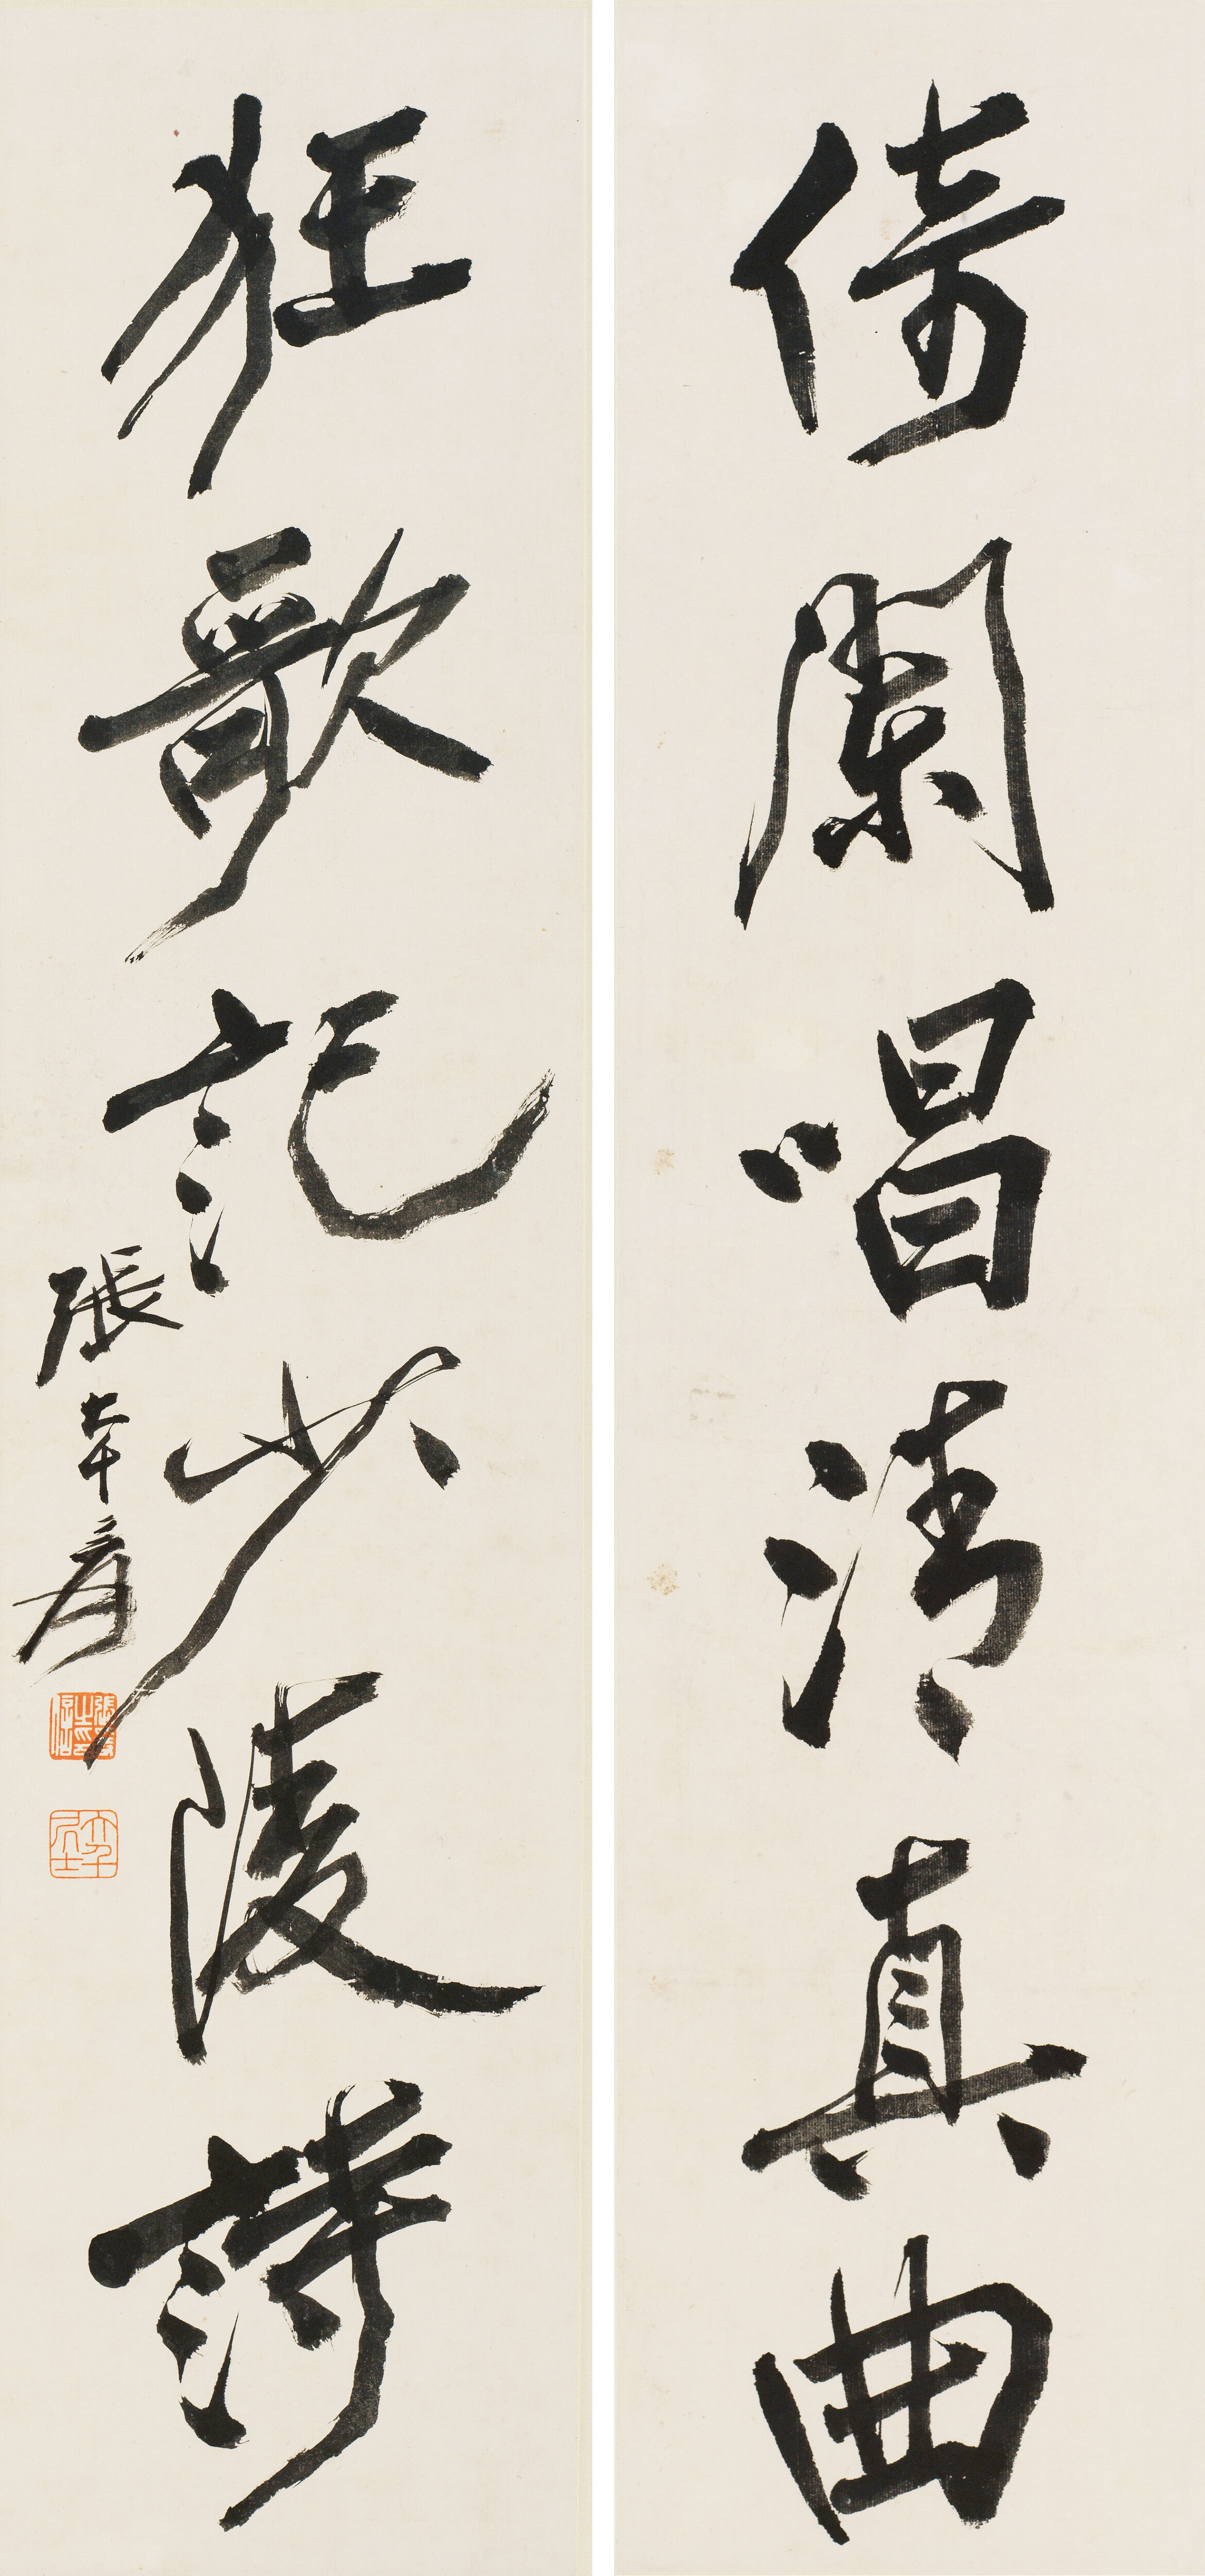 倚闌唱清真曲
狂歌記少陵詩
張大千爰
張爰之印信
大千居士